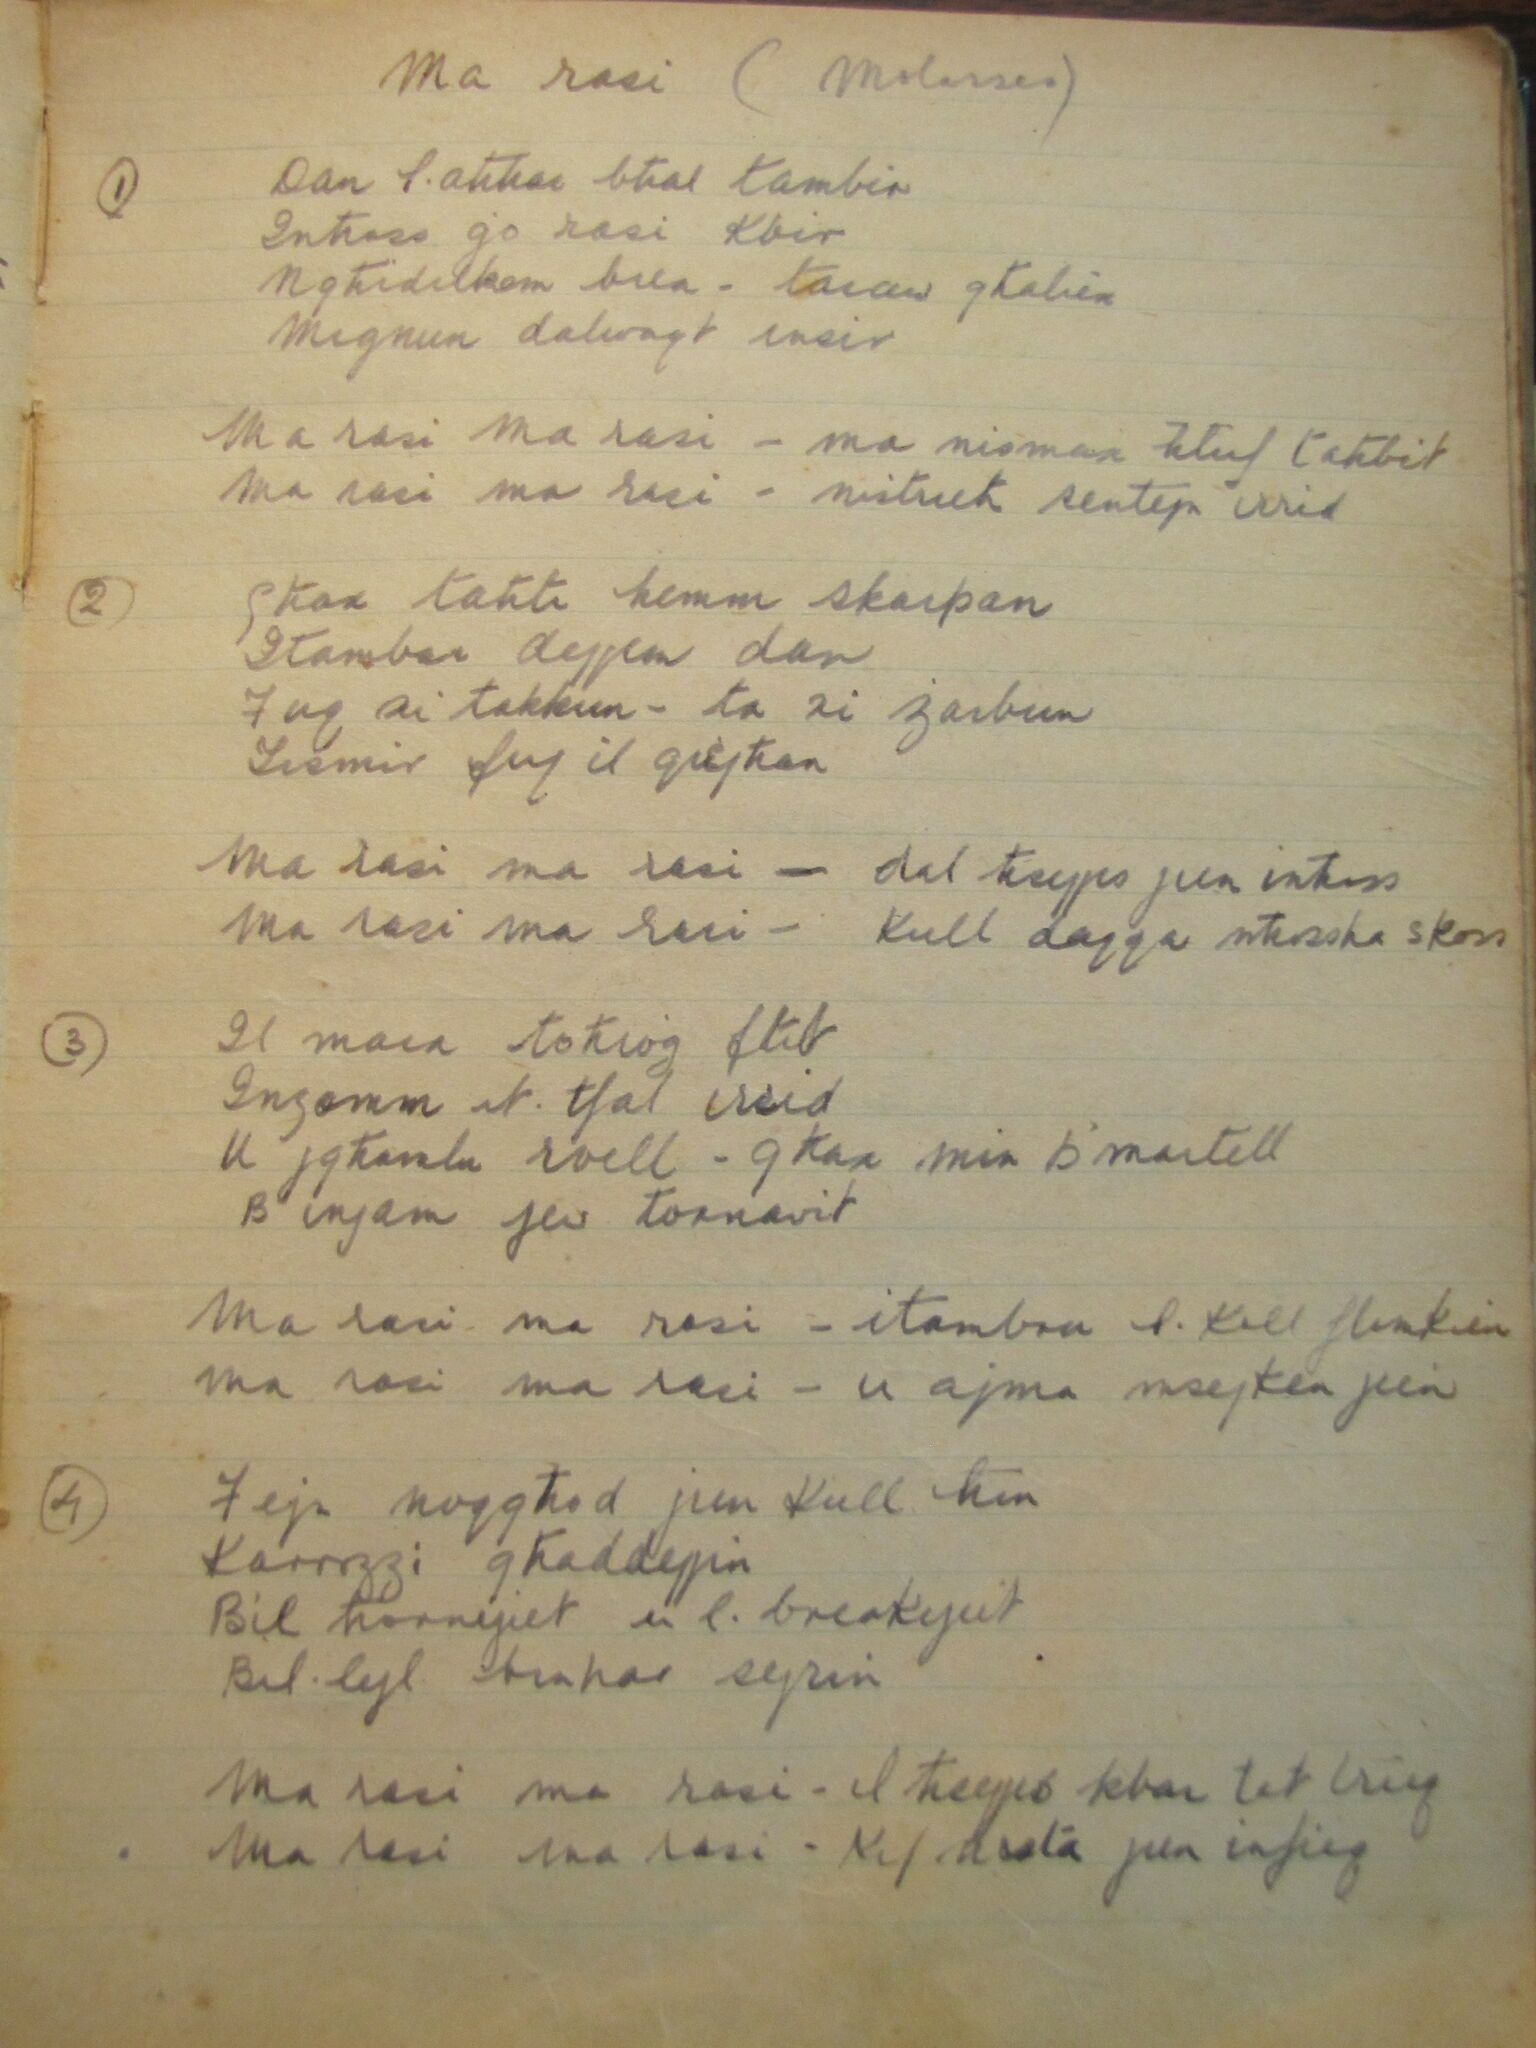 Ma rasi (Molasses)
① Dan l. aħħar bħal tambir
Inħoss ġo rasi Kbir
Ngħidilkom biex - taraw għaliex
Miġnun dalwaqt insir
Ma rasi ma rasi - ma nismax ħlief taħbit
Ma rasi ma rasi - nistrieħ sentejn irrid
② Għax taħti hemm skarpan
Itambar dejjem dan
Fuq xi takkun - ta xi żarbun
Lismir fuq il qiegħan
Ma rasi ma rasi - dal ħsejjes jien inħoss
Ma rasi ma rasi - Kull daqqa nħossha skoss
③ Il mara toħroġ ftit
Inżomm it. tfal irrid
U jgħamlu rvell - għax min b'martell
B injam jew tornavit
Ma rasi ma rasi - itambru l. Kull flimkien
Ma rasi ma rasi - u ajma msejken jien
④ Fejn noqgħod jien Kull ħin
Karrozzi għaddejjin
Bil ħornijiet u l. breakijiet
Bil. lejl binhar sejrin
Ma rasi ma rasi - il ħsejjes kbar tat triq
Ma rasi ma rasi - Kif jien infieq